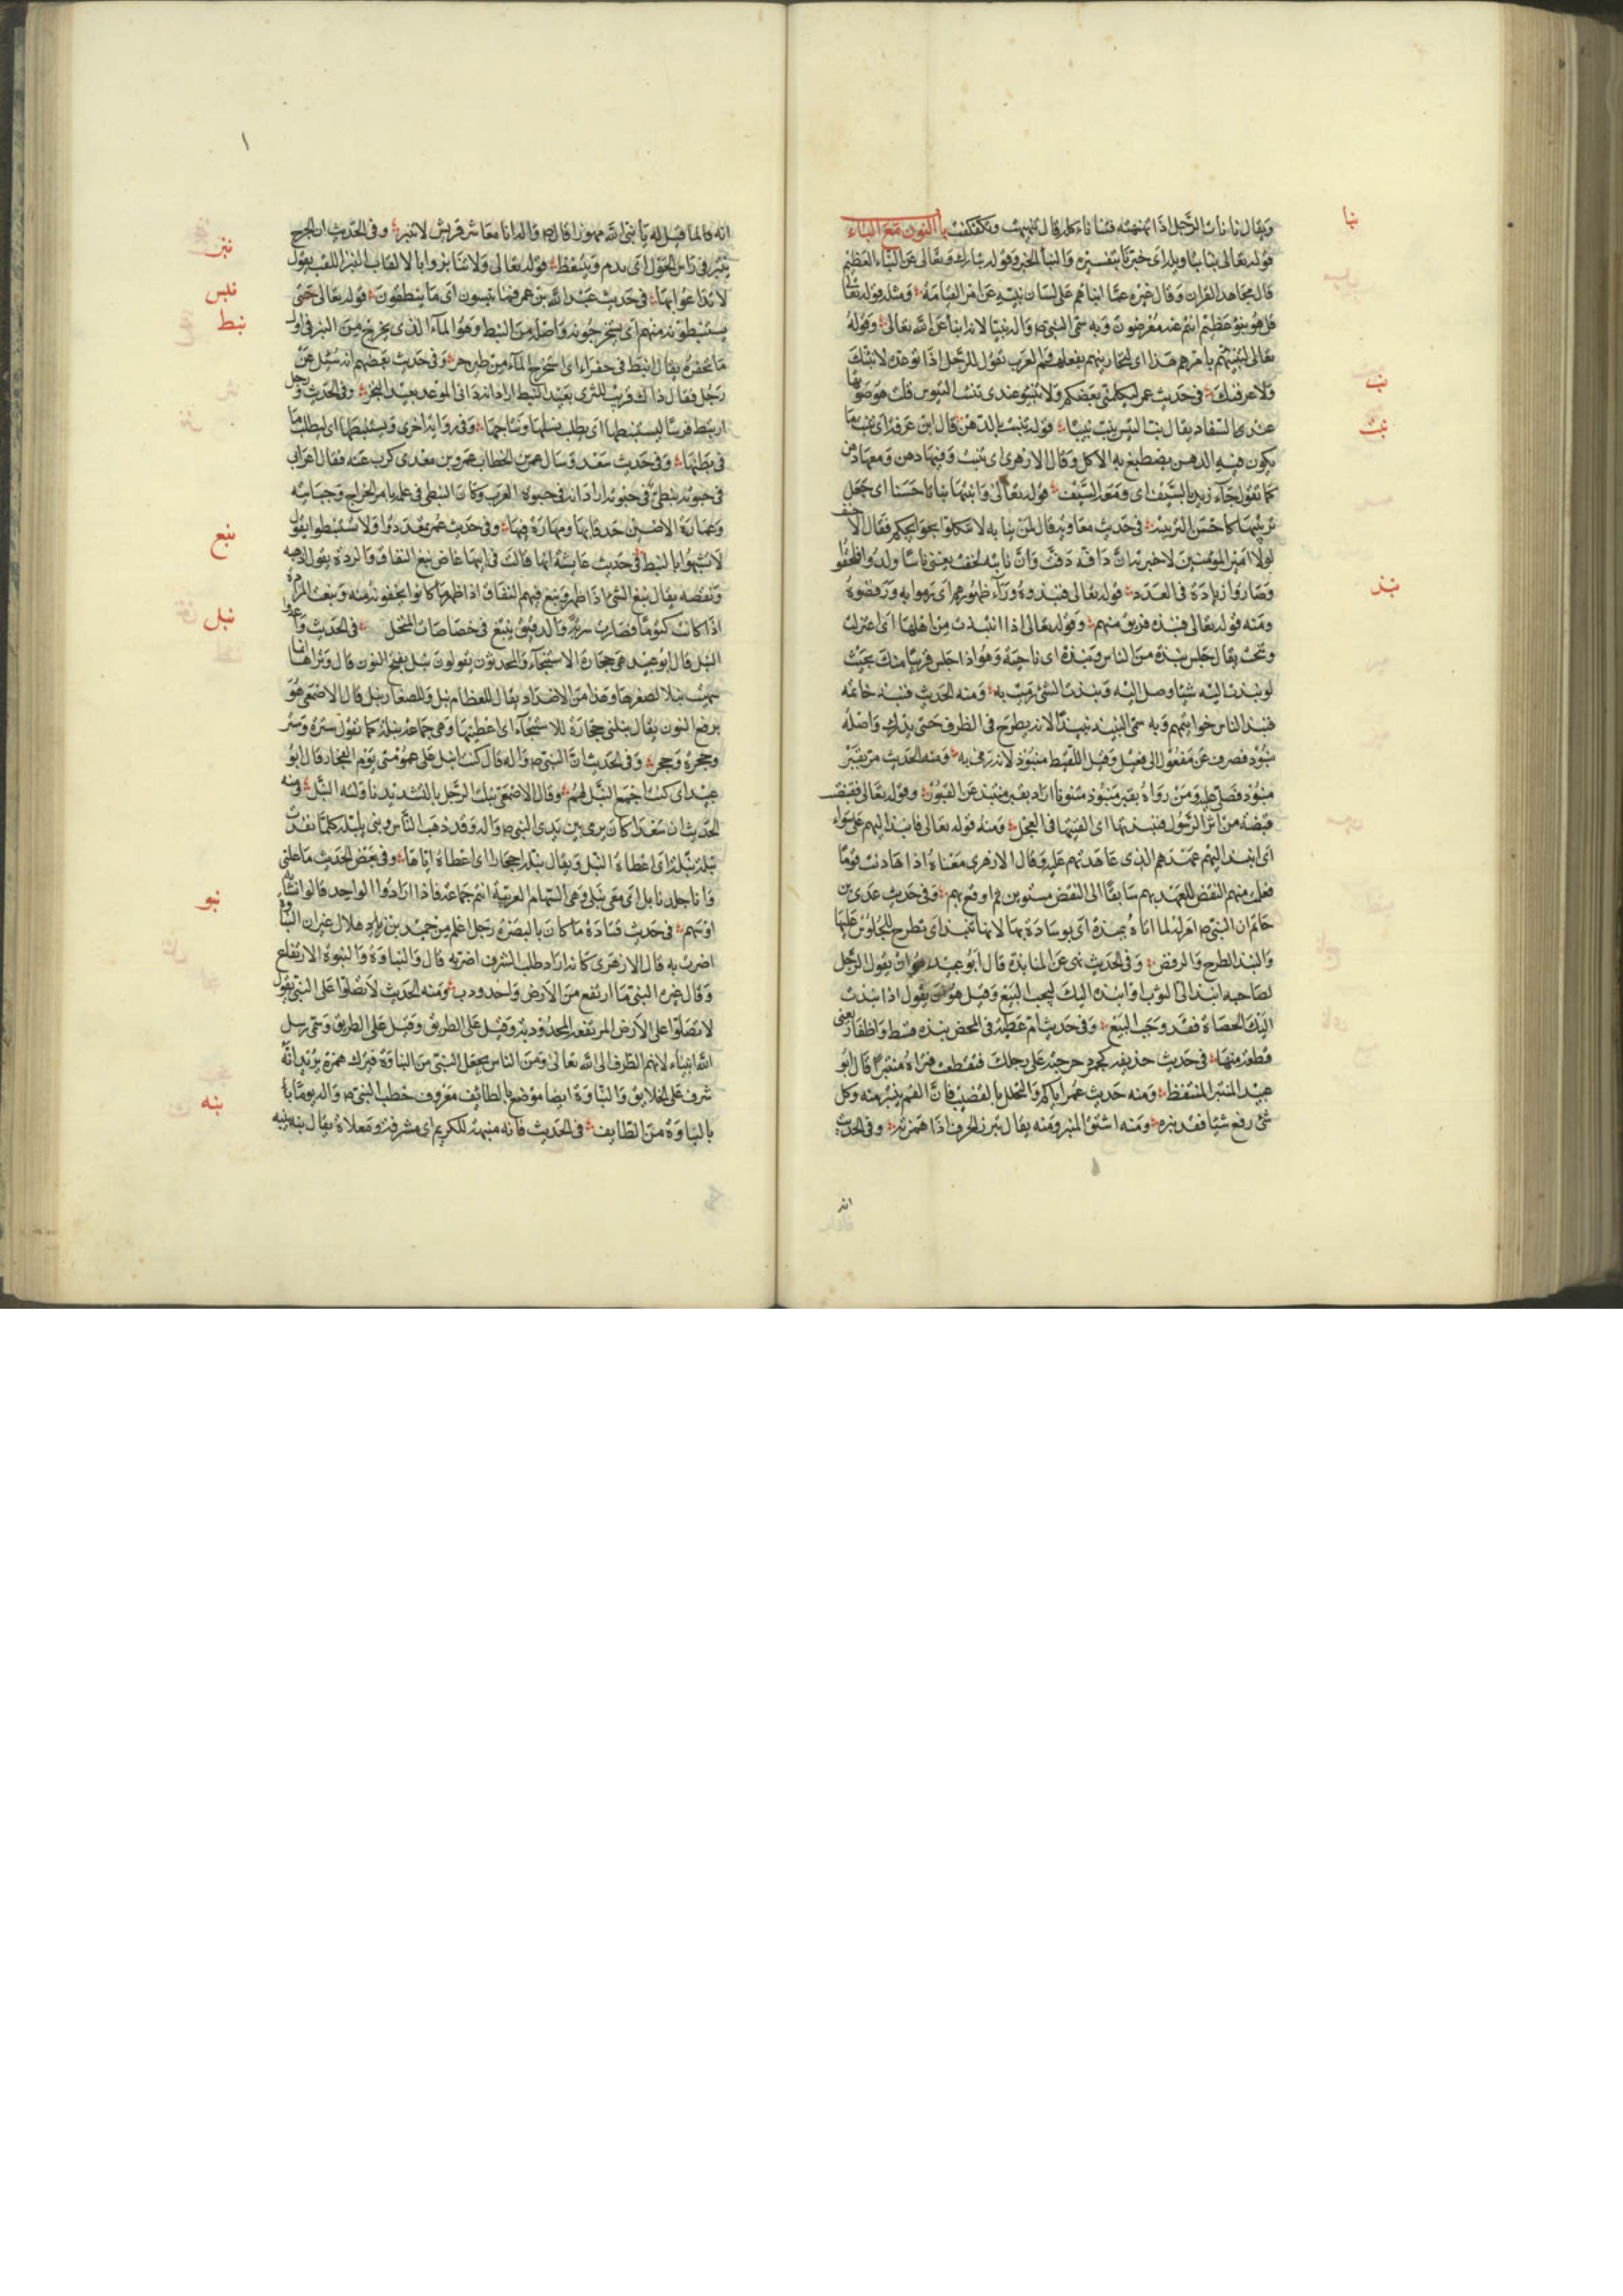 نبا
ويقال نانات الرجل اذا نهنهته فتنانا كانه قال نهنهت وتكفكفت باب النون مع الباء
قوله تعالى نبانا بتاويله اى خبرنا بتفسيره والنبأ الخبر وقوله تبارك وتعالى عن النباء العظيم
قال مجاهد القران وقال غيره عما انباهم على لسان نبيه عن امر القيامة ومثله قوله تعالى
قل هو نبؤ عظيم انتم عنه معرضون وبه سمى النبى ص واله نبيا لانه انبأ عن الله تعالى وقوله
تعالى لتنبئنهم بامرهم هذا اى لتجازينهم بفعلهم والعرب تقول للرجل اذا توعده لانبئنك
نب
ولاعرفنك فى حديث عمر ليكلمنى بعضكم ولا تنبوا عندى نبيب التيوس قلت هو صوتها
نبت
عند السفاد يقال نب التيس ينب نبيبا قوله تنبت بالدهن قال ابن عرفة اى تنبت ما
يكون فيه الدهن يصطبغ به الاكل وقال الازهرى اى تنبت وفيها دهن ومعها دهن
كما تقول جاء زيد بالسيف اى ومعه السيف قوله تعالى وانبتها نباتا حسنا اى جعل
تربيتها كاحسن التربية فى حديث معاوية قال لمن ببابه لا تتكلموا بحوائجكم فقال الاحنف
لولا امير المؤمنين لاخبرته ان دافة دفت وان نابتة لحقت يعنى ناسا ولدوا فلحقوا
نبذ
وصاروا زيادة فى العدد قوله تعالى فنبذوه وراء ظهورهم اى رموا به ورفضوه
ومنه قوله تعالى نبذه فريق منهم وقوله تعالى اذا انتبذت من اهلها اى اعتزلت
وتنحت يقال جلس نبذة من الناس ونبذة اى ناحية وهو اذا جلس قريبا منك بحيث
لو نبذت اليه شيئا وصل اليه ونبذت الشئ رميت به ومنه الحديث فنبذ خاتمه
فنبذ الناس خواتيمهم وبه سمى النبيذ نبيذا لانه يطرح فى الظرف حتى يدرك واصله
منبوذ فصرف عن مفعول الى فعيل وقيل اللقيط منبوذ لانه رمى به ومنه الحديث مر بقبر
منبوذ فصلى عليه ومن رواه بقبر منبوذ منونا اراد بقبر منتبذ عن القبور وقوله تعالى فقبضت
قبضة من اثر الرسول فنبذتها اى القيتها فى العجل ومنه قوله تعالى فانبذ اليهم على سواء
اى انبذ اليهم عهدهم الذى عاهدتهم عليه وقال الازهرى معناه اذا هادنت قوما
فعلمت منهم النقض للعهد بهم سابقا الى النقض مستوين ثم اوقع بهم وفى حديث عدى بن
حاتم ان النبى ص امر له لما اتاه بمنبذة اى بوسادة بها لانها تنبذ اى تطرح للجلوس عليها
والنبذ الطرح والرفض وفى الحديث نهى عن المنابذة قال ابو عبيد هو ان يقول الرجل
لصاحبه انبذ الى الثوب او انبذه اليك ليجب البيع وقيل هو ان يقول اذا نبذت
اليك الحصاة فقد وجب البيع وفى حديث ام عطية فى المحض نبذة قسط واظفار يعنى
قطعة منها فى حديث حذيفة كجمر دحرجته على رجلك فتنفطت فتراه منتبرا قال ابو
عبيد المنتبر المنتفط ومنه حديث عمر اياكم والتخلل بالقصب فان الفم ينتبر منه وكل
شئ رفع شيئا فقد نبره ومنه اشتق المنبر ومنه يقال نبرت الحرف اذا همزته وفى الحديث
انه
انه لما قيل له يا نبئ الله مهموزا قال ص واله انا معاشر قريش لا ننبر وفى الحديث ان الجرح
نبز
ينتبر فى راس الحول اى يدم وينتفط قوله تعالى ولا تنابزوا بالالقاب النبز اللقب يقول
نبس
لا تداعوا بها فى حديث عبد الله بن عمر فما ينبسون اى ما ينطقون قوله تعالى حتى
نبط
يستنبطونه منهم اى يستخرجونه واصله من النبط وهو الماء الذى يخرج من البئر فى اول
ما تحفر يقال انبط فى حفراء اى استخرج الماء من طين حر وفى حديث بعضهم انه سئل عن
رجل فقال ذاك قريب الثرى بعيد النبط اراد انه دانى الموعد بعيد المنجز وفى الحديث ورجل
ارتبط فرسا ليستنبطها اى يطلب نسلها ونتاجها وفى رواية اخرى ويستبطنها اى ليطلب ما
فى بطنها وفى حديث سعد وسال عمر بن الخطاب عمرو بن معدى كرب عنه فقال اعرابى
فى حبوته نبطى فى جبوته اراد انه فى حبوة العرب وكان النبطى فى علمه بامر الخراج وجبايته
وعمارة الارضين حذقا بها ومهارة فيها وفى حديث عمر تمعددوا ولا تستنبطوا يقول
نبغ
لا تشبهوا بالنبط فى حديث عايشة انها قالت فى ابيها غاض نبغ النفاق والردة يقول اذهبه
ونقصه يقال نبغ الشئ اذا ظهر ونبغ فيهم النفاق اذا ظهر ما كانوا يخفونه منه ونبغت المراة
نبل
اذا كانت كتوما فصارت سرية والدقيق ينبغ فى خصاصات المنخل فى الحديث واعدوا
النبل قال ابو عبيد هى حجارة الاستنجاء والمحدثون يقولون نبل بفتح النون قال ونراها انما
سميت نبلا لصغرها وهذا من الاضداد يقال للعظام نبل وللصغار نبل قال الاصمعى هو
برفع النون يقال نبلنى حجارة للاستنجاء اى اعطنيها وهى جماعة نبلة كما تقول سترة وستر
وحجرة وحجر وفى الحديث ان النبى ص واله قال كنت انبل على عمومتى يوم الفجار قال ابو
عبيد اى كنت اجمع النبل لهم وقال الاصمعى نبلت الرجل بالتشديد ناولته النبل ومنه
الحديث ان سعدا كان يرمى بين يدى النبى ص واله وقد ذهب الناس وفتى ينبله كلما نفدت
نبله نبله اى اعطاه النبل ويقال نبله احجارا اى اعطاه اياها وفى بعض الحديث ما علتى
وانا جلد نابل اى معى نبلى وهى السهام العربية اسم جماعة فاذا ارادوا الواحد قالوا نشابة
نبو
او سهم فى حديث قتادة ما كان بالبصرة رجل اعلم من حميد بن هلال غير ان النباوة
اضرت به قال الازهرى كانه اراد طلب الشرف اضر به قال والنباوة والنبوة الارتفاع
وقال غيره النبى ما ارتفع من الارض واحدودب ومنه الحديث لا تصلوا على النبى يقول
لا تصلوا على الارض المرتفعة المحدودبة وقيل على الطريق وقيل على الطريق وسمى رسل
الله انبياء لانهم الطرق الى الله تعالى ومن الناس يجعل النبى من النباوة فيترك همزه يريد انه
نبه
شرف على الخلايق والنباوة ايضا موضع بالطائف معروف خطب النبى ص واله يوما
بالنباوة من الطايف فى الحديث فانه منبهة للكريم اى مشرفة ومعلاة يقال نبه ينبه